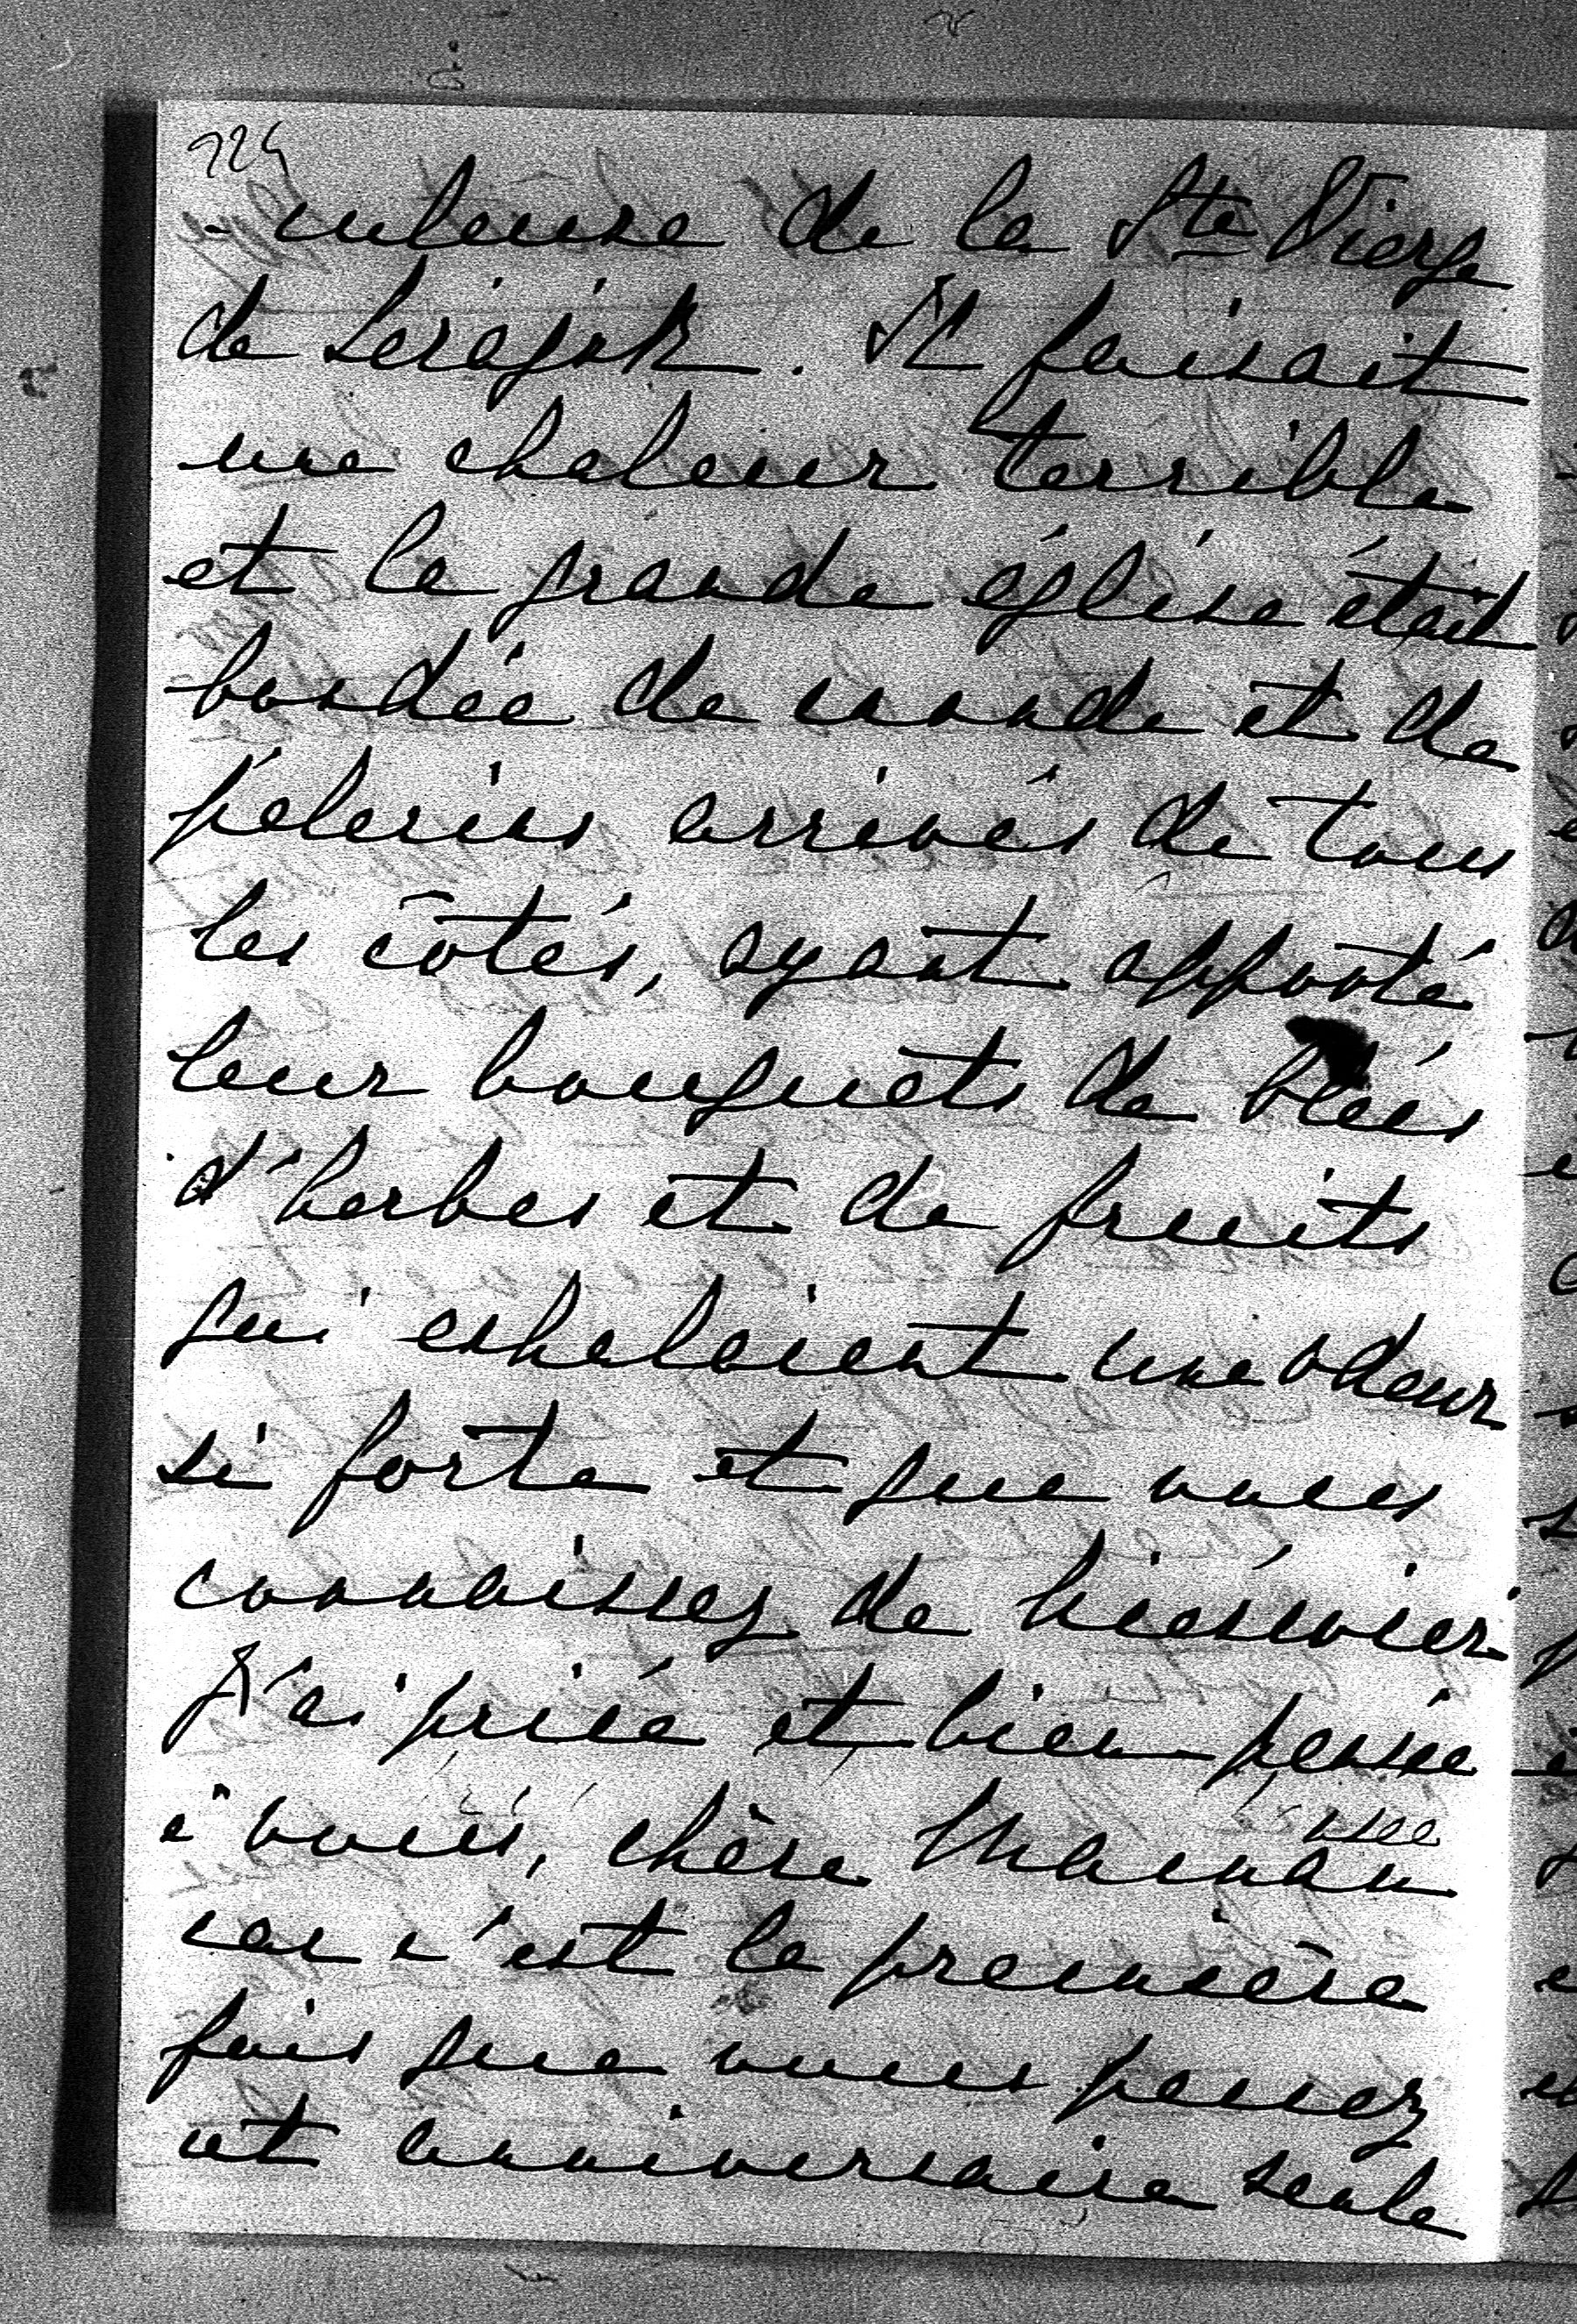 724
-culeuse de la Ste Vierge
de Lerajsk. Il faisait
une chaleur terrible
et la grande église était
bondée de monde et de
pelerins arrivés de tous
les côtés, ayant apporté
leur bouquets de blés
d'herbes et de fruits
qui exhalaient une odeur
si forte et que vous
connaissez de
J'ai priée et bien pensée
à vous, chère Maman
car c'est la première
fois que vous passez
cet anniversaire seule